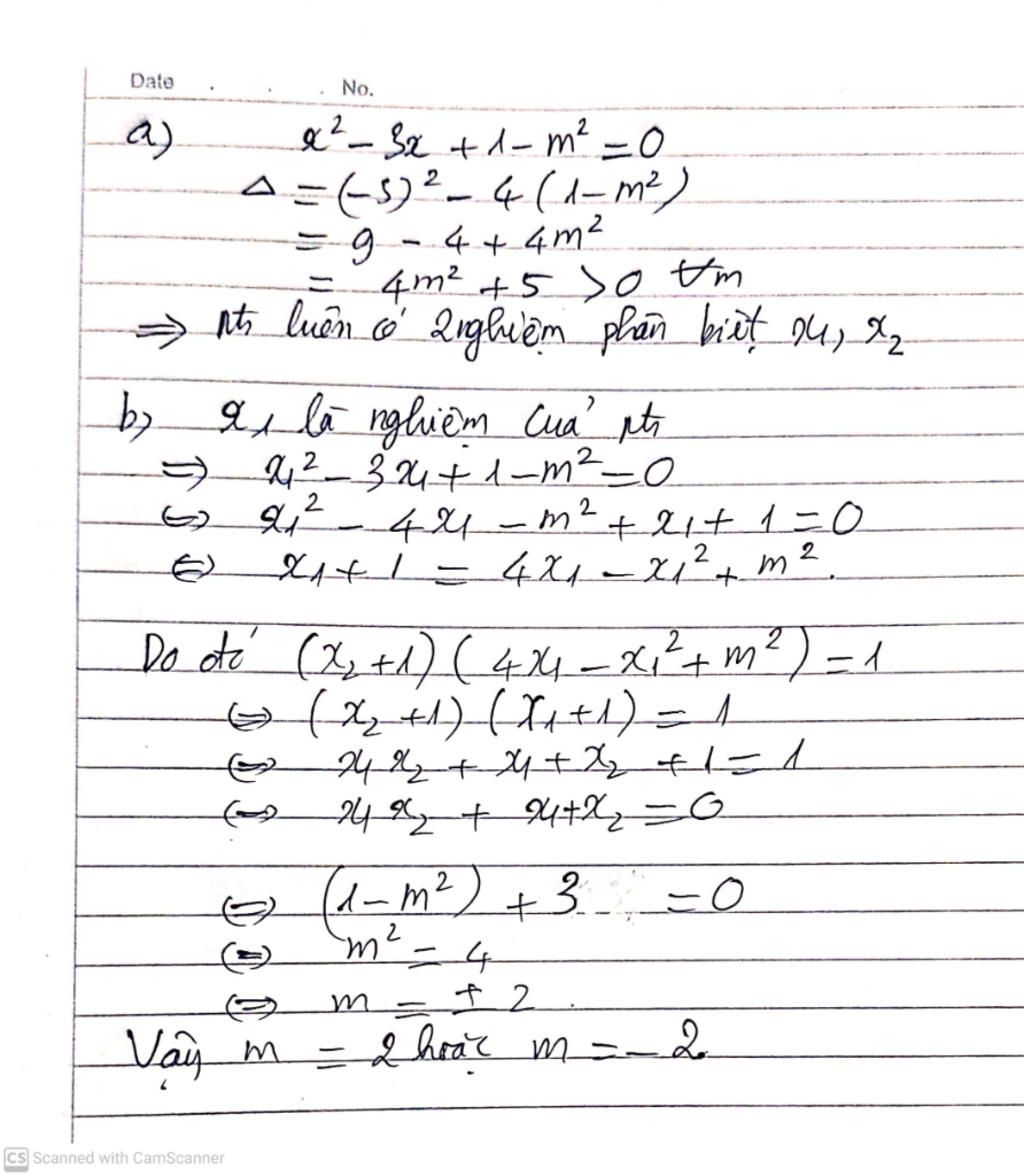 Date . . . No.
a) x² – 3x + 1 – m² = 0
Δ = (–3)² – 4(1 – m²)
= 9 – 4 + 4m²
= 4m² + 5 > 0 ∀m
⇒ pt luôn có 2 nghiệm phân biệt x₁, x₂
b) x₁ là nghiệm của pt
⇒ x₁² – 3x₁ + 1 – m² = 0
⇔ x₁² – 4x₁ – m² + x₁ + 1 = 0
⇔ x₁ + 1 = 4x₁ – x₁² + m².
Do đó (x₂ + 1)(4x₁ – x₁² + m²) = 1
⇔ (x₂ + 1)(x₁ + 1) = 1
⇔ x₁x₂ + x₁ + x₂ + 1 = 1
⇔ x₁x₂ + x₁ + x₂ = 0
⇔ (1 – m²) + 3 = 0
⇔ m² = 4
⇔ m = ± 2.
Vậy m = 2 hoặc m = – 2
CS Scanned with CamScanner